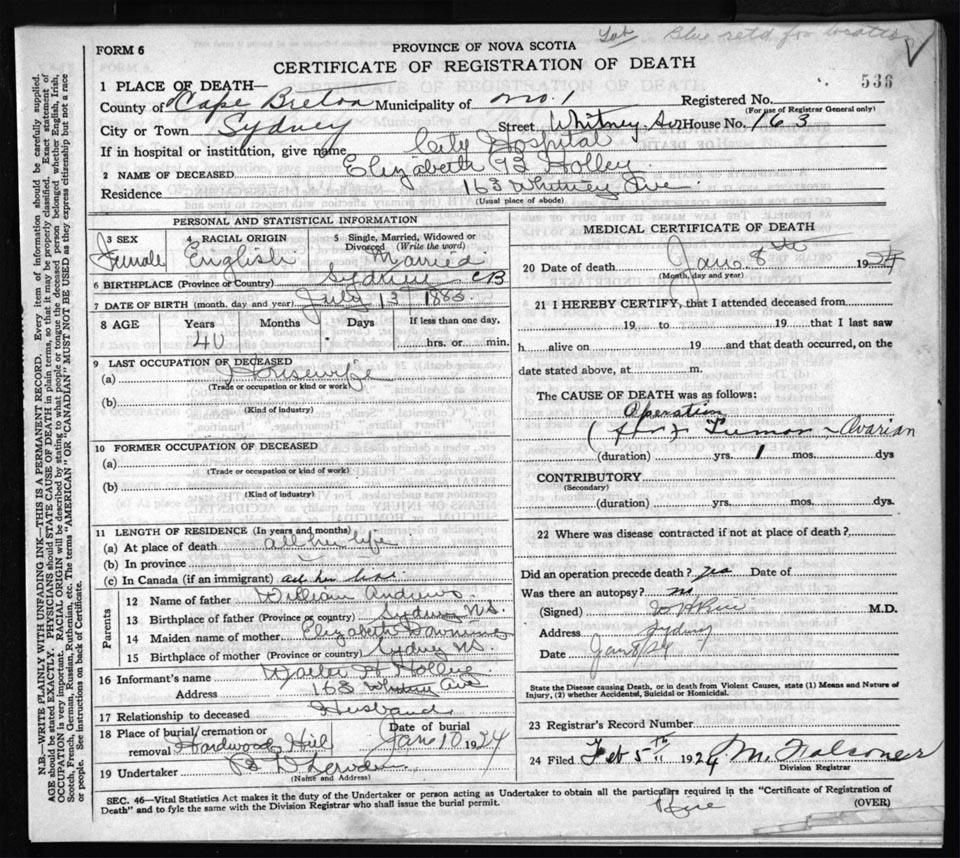 FORM 6
PROVINCE OF NOVA SCOTIA
CERTIFICATE OF REGISTRATION OF DEATH
536
1 PLACE OF DEATH—
County of Cape Breton Municipality of No. 1 Registered No.
(For use of Registrar General only)
City or Town Sydney Street, Whitney Ave House No. 163
If in hospital or institution, give name City Hospital
2 NAME OF DECEASED Elizabeth B Holley
Residence 163 Whitney Ave
(Usual place of abode)
PERSONAL AND STATISTICAL INFORMATION
3 SEX Female
4 RACIAL ORIGIN English
5 Single, Married, Widowed or Divorced (Write the word) Married
6 BIRTHPLACE (Province or Country) Sydney CB
7 DATE OF BIRTH (month, day and year) July 13 1883
8 AGE Years Months Days If less than one day,
40 hrs. or min.
9 LAST OCCUPATION OF DECEASED
(a) Housewife
(Trade or occupation or kind of work)
(b)
(Kind of industry)
10 FORMER OCCUPATION OF DECEASED
(a)
(Trade or occupation or kind of work)
(b)
(Kind of industry)
11 LENGTH OF RESIDENCE (In years and months)
(a) At place of death all her life
(b) In province
(c) In Canada (if an immigrant) all her
Parents
12 Name of father William Andrews
13 Birthplace of father (Province or country) Sydney NS.
14 Maiden name of mother Elizabeth
15 Birthplace of mother (Province or country) Sydney NS.
16 Informant's name Walter H Holley
Address 163 Whitney Ave
17 Relationship to deceased Husband
18 Place of burial/cremation or removal Hardwood Hill Date of burial Jan 10 1924
19 Undertaker
(Name and Address)
MEDICAL CERTIFICATE OF DEATH
20 Date of death Jan 8th 1924
(Month, day and year)
21 I HEREBY CERTIFY, that I attended deceased from
19 to 19 that I last saw
h alive on 19 and that death occurred, on the
date stated above, at m.
The CAUSE OF DEATH was as follows:
Operation
( for Tumor - Ovarian
(duration) yrs. 1 mos. dys
CONTRIBUTORY
(Secondary)
(duration) yrs. mos. dys.
22 Where was disease contracted if not at place of death?
Did an operation precede death? yes Date of
Was there an autopsy?
(Signed) M.D.
Address Sydney
Date Jan 8/24
State the Disease causing Death, or in death from Violent Causes, state (1) Means and Nature of Injury, (2) whether Accidental, Suicidal or Homicidal.
23 Registrar's Record Number
24 Filed Feb 5th 1924 M. Falconer
Division Registrar
SEC. 46—Vital Statistics Act makes it the duty of the Undertaker or person acting as Undertaker to obtain all the particulars required in the "Certificate of Registration of
Death" and to fyle the same with the Division Registrar who shall issue the burial permit.
(OVER)
N.B.—WRITE PLAINLY WITH UNFADING INK—THIS IS A PERMANENT RECORD. Every item of information should be carefully supplied.
AGE should be stated EXACTLY. PHYSICIANS should STATE CAUSE OF DEATH in plain terms, so that it may be properly classified. Exact statement of
OCCUPATION is very important. RACIAL ORIGIN will be described by stating to what people or tongue the deceased person belonged whether English, Irish,
Scotch, French, German, Russian, Ruthenian, etc. The terms "AMERICAN" OR "CANADIAN" MUST NOT BE USED as they express citizenship but not a race
or people. See instructions on back of Certificate.